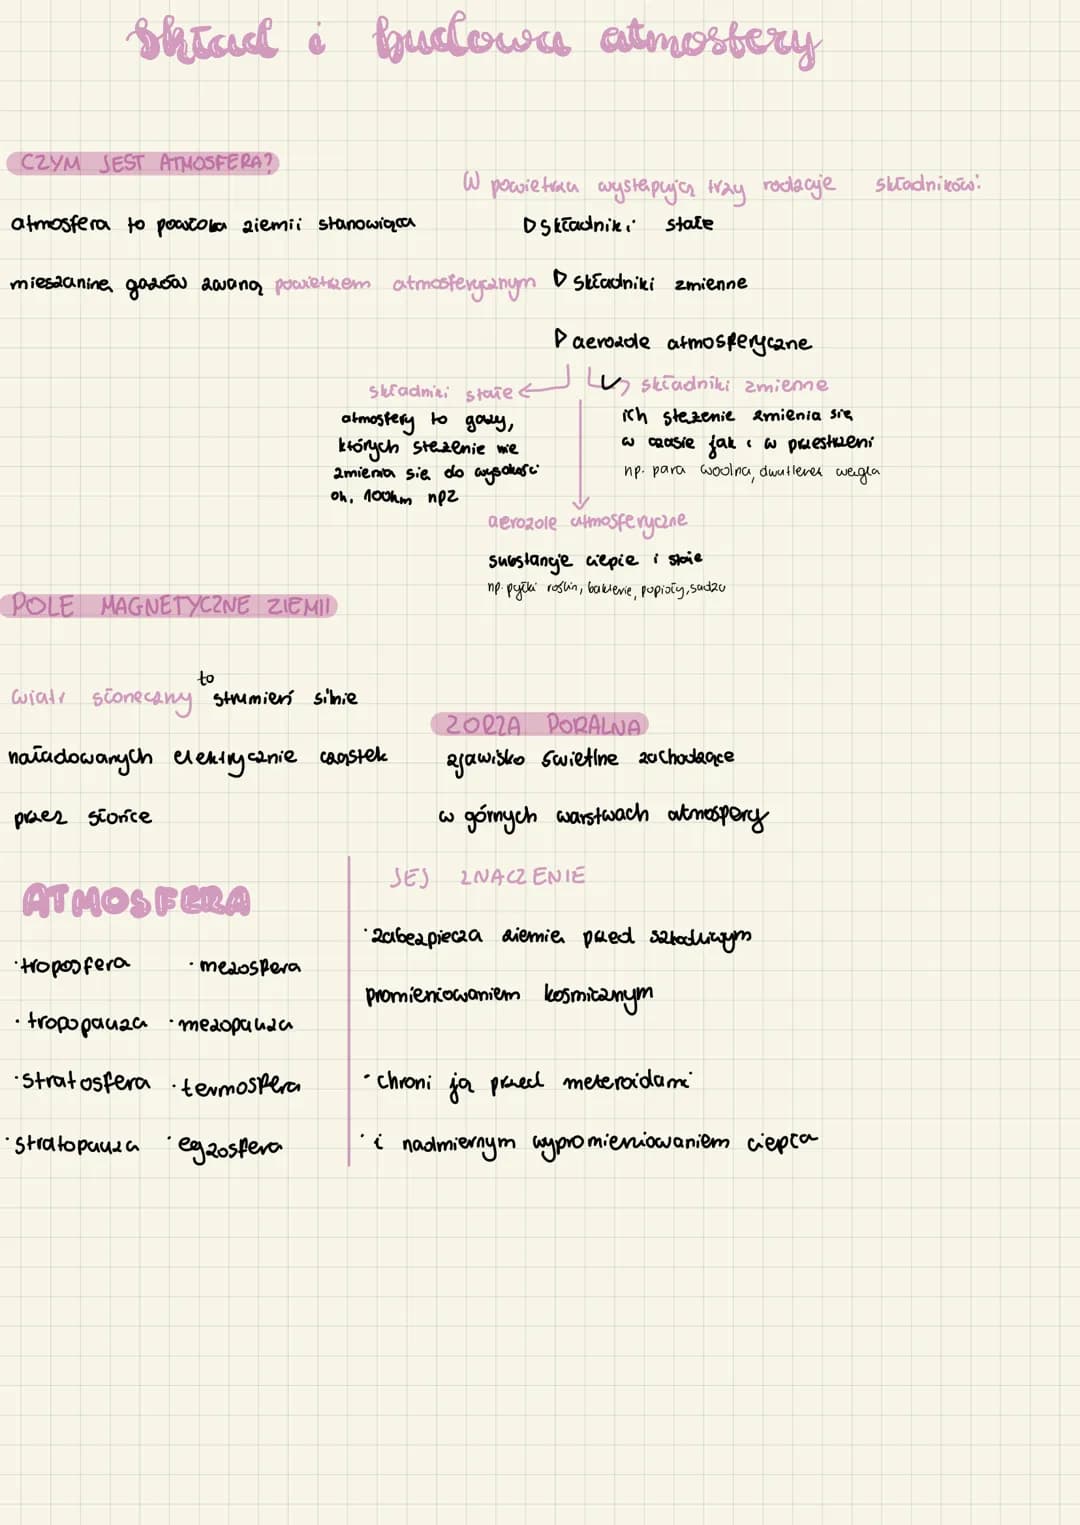 Skład i budowa atmosfery
CZYM JEST ATMOSFERA?
atmosfera to powłoka ziemii stanowiąca
mieszaninę gazów zwaną powietrzem atmosferycznym
W powietrzu występują trzy rodzaje składników:
▷ składniki stałe
▷ składniki zmienne
▷ aerozole atmosferyczne
składniki stałe
atmosfery to gazy,
których stężenie nie
zmienia się do wysokości
ok. 100km npz
składniki zmienne
ich stężenie zmienia się
w czasie jak i w przestrzeni
np. para wodna, dwutlenek węgla
aerozole atmosferyczne
substancje ciepłe i stałe
np. pyłki roślin, bakterie, popioły, sadza
POLE MAGNETYCZNE ZIEMII
wiatr słoneczny to strumień silnie
naładowanych elektrycznie cząstek
przez słońce
ZORZA PORALNA
zjawisko świetlne zachodzące
w górnych warstwach atmosfery
ATMOSFERA
·troposfera
·tropopauza
·stratosfera
·stratopauza
·mezosfera
·mezopauza
·termosfera
·egzosfera
JEJ ZNACZENIE
·zabezpiecza ziemię przed szkodliwym
promieniowaniem kosmicznym
·chroni ją przed meteroidami
·i nadmiernym wypromieniowaniem ciepła